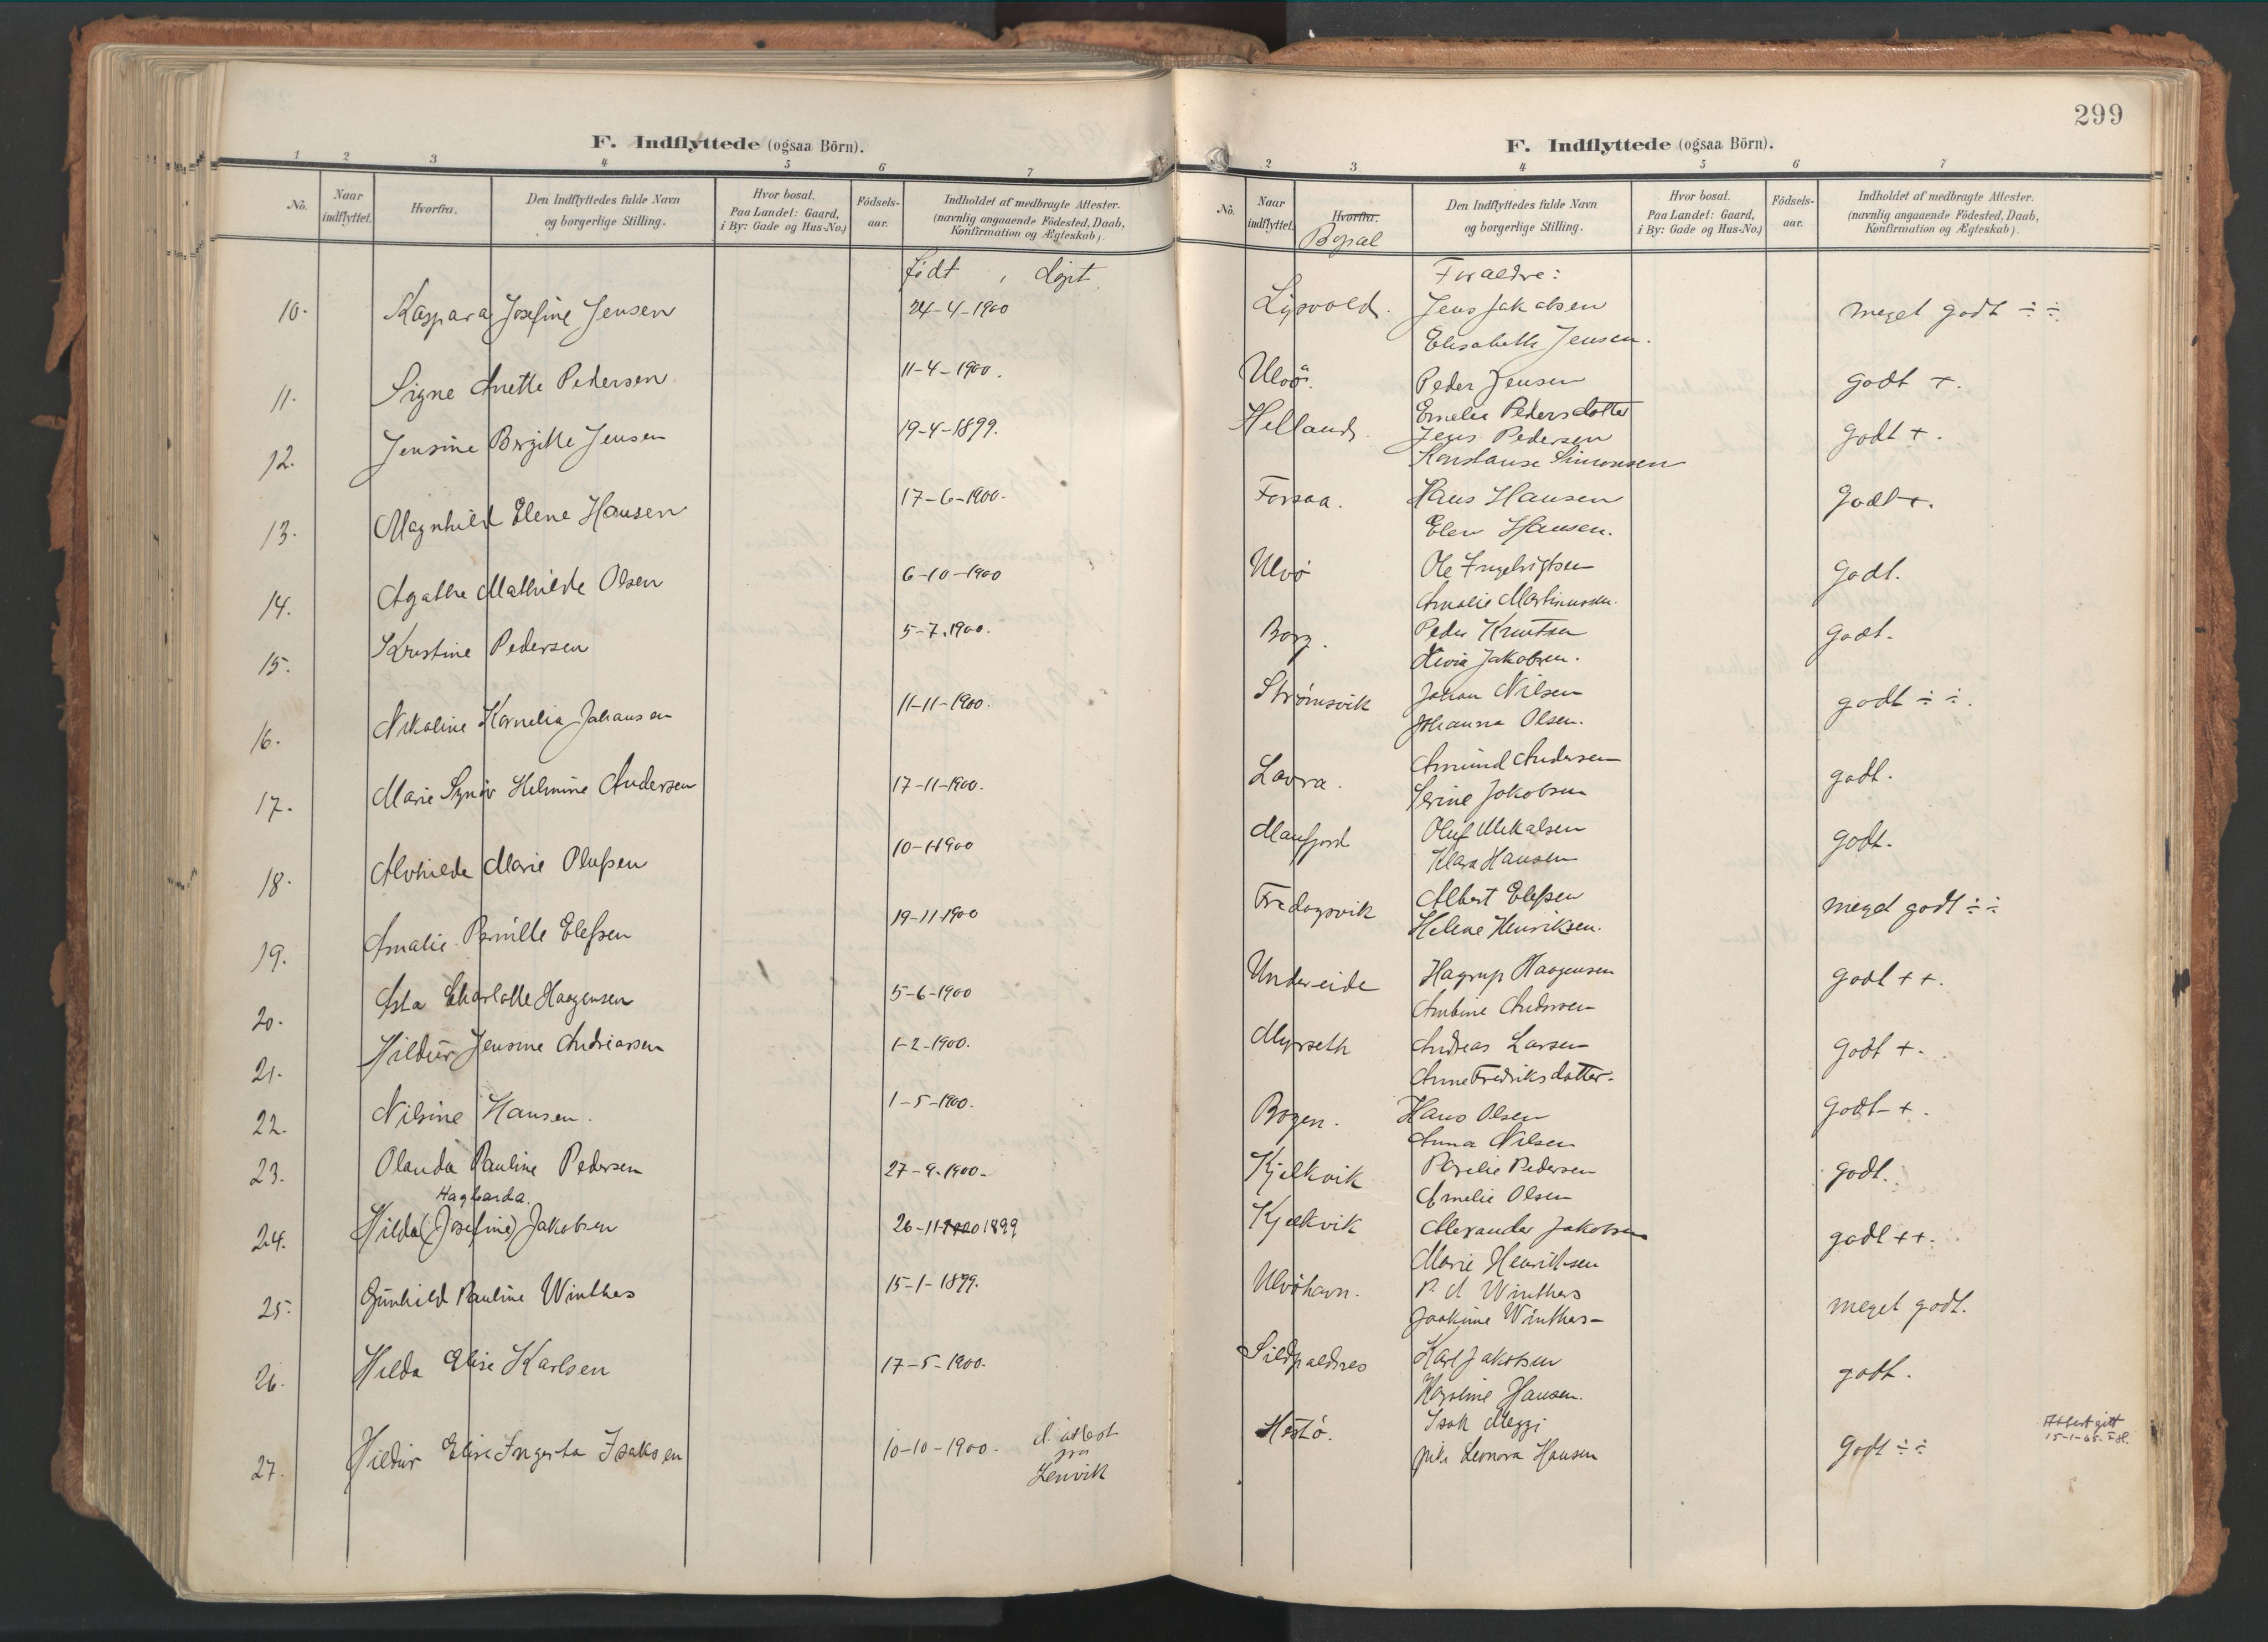 F. Indflyttede (ogsaa Börn).
1 2 3 4 5 6 7
No.
Naar indflyttet.
Hvorfra.
Den Indflyttedes fulde Navn og borgerlige Stilling.
Hvor bosat. Paa Landet: Gaard, i By: Gade og Hus-No.)
Födsels-aar.
Indholdet af medbragte Attester. (navnlig angaaende Födested, Daab, Konfirmation og Ægteskab).
Födt , døpt
10. Kaspara Josefine Jensen 24-4-1900
11. Signe Anette Pedersen 11-4-1900.
12. Jensine Birgitte Jensen 19-4-1899.
13. Magnhild Elene Hansen 17-6-1900.
14. Agathe Mathilde Olsen 6-10-1900
15. Kristine Pedersen 5-7-1900.
16. Nikoline Kornelia Johansen 11-11-1900.
17. Marie Synøv Helmine Andersen 17-11-1900.
18. Alvhilde Marie Olufsen 10-1-1900
19. Amalie Pernille Elefsen 19-11-1900
20. Asta Charlotte Haagensen 5-6-1900
21. Hildur Jensine Andreassen 1-2-1900.
22. Nilsine Hansen. 1-5-1900.
23. Olauda Pauline Pedersen 27-9-1900.
Hagbarda.
24. Hilda (Josefine) Jakobsen 26-11-1900 1899
25. Gunhild Pauline Winthers 15-1-1899.
26. Hilda Elise Karlsen 17-5-1900.
27. Hildur Elise Ingerta Isaksen 10-10-1900. d. attest
fra
Lenvik
299
F. Indflyttede (ogsaa Börn).
2 3 4 5 6 7
No.
Naar indflyttet.
Hvorfra.
Bopæl
Den Indflyttedes fulde Navn og borgerlige Stilling.
Hvor bosat. Paa Landet: Gaard, i By: Gade og Hus-No.)
Födsels-aar.
Indholdet af medbragte Attester. (navnlig angaaende Födested, Daab, Konfirmation og Ægteskab).
Foraldre:
Ligvold. Jens Jakobsen meget godt ÷ ÷
Elisabeth Jensen.
Ulvö. Peder Jensen godt +.
Emelie Pedersdotter
Helland. Jens Pedersen godt +.
Konstanse Simonsen
Forsaa. Hans Hansen godt +.
Elen Hansen.
Ulvö Ole Ingebrigtsen godt.
Amalie Martinussen.
Borg. Peder Knutsen godt.
Livia Jakobsen.
Strømsvik Johan Nilsen godt ÷ ÷.
Johanna Olsen.
Lavra. Amund Andersen godt.
Serine Jakobsen
Manfjord Oluf Mikalsen godt.
Klara Hansen
Fredagsvik Albert Elefsen meget godt ÷ ÷
Helene Henriksen.
Undereide Hagrup Haagensen godt + +.
Ambine Andersen
Myrseth Andreas Larsen godt +.
Anne Fredriksdotter.
Bogen. Hans Olsen godt +.
Anna Nilsen
Kjelkvik Perelie Pedersen godt.
Amelie Olsen
Kjelkvik Alexander Jakobsen godt + +.
Marie Henriksen
Ulvöhavn. P. A Winthers meget godt.
Joakime Winthers
Sildpaldnes Karl Jakobsen godt.
Karoline Hansen.
Hestö. Isak Meggi godt ÷ ÷
Julie Leonora Hansen
Attest gitt
15-1-65. F.H.